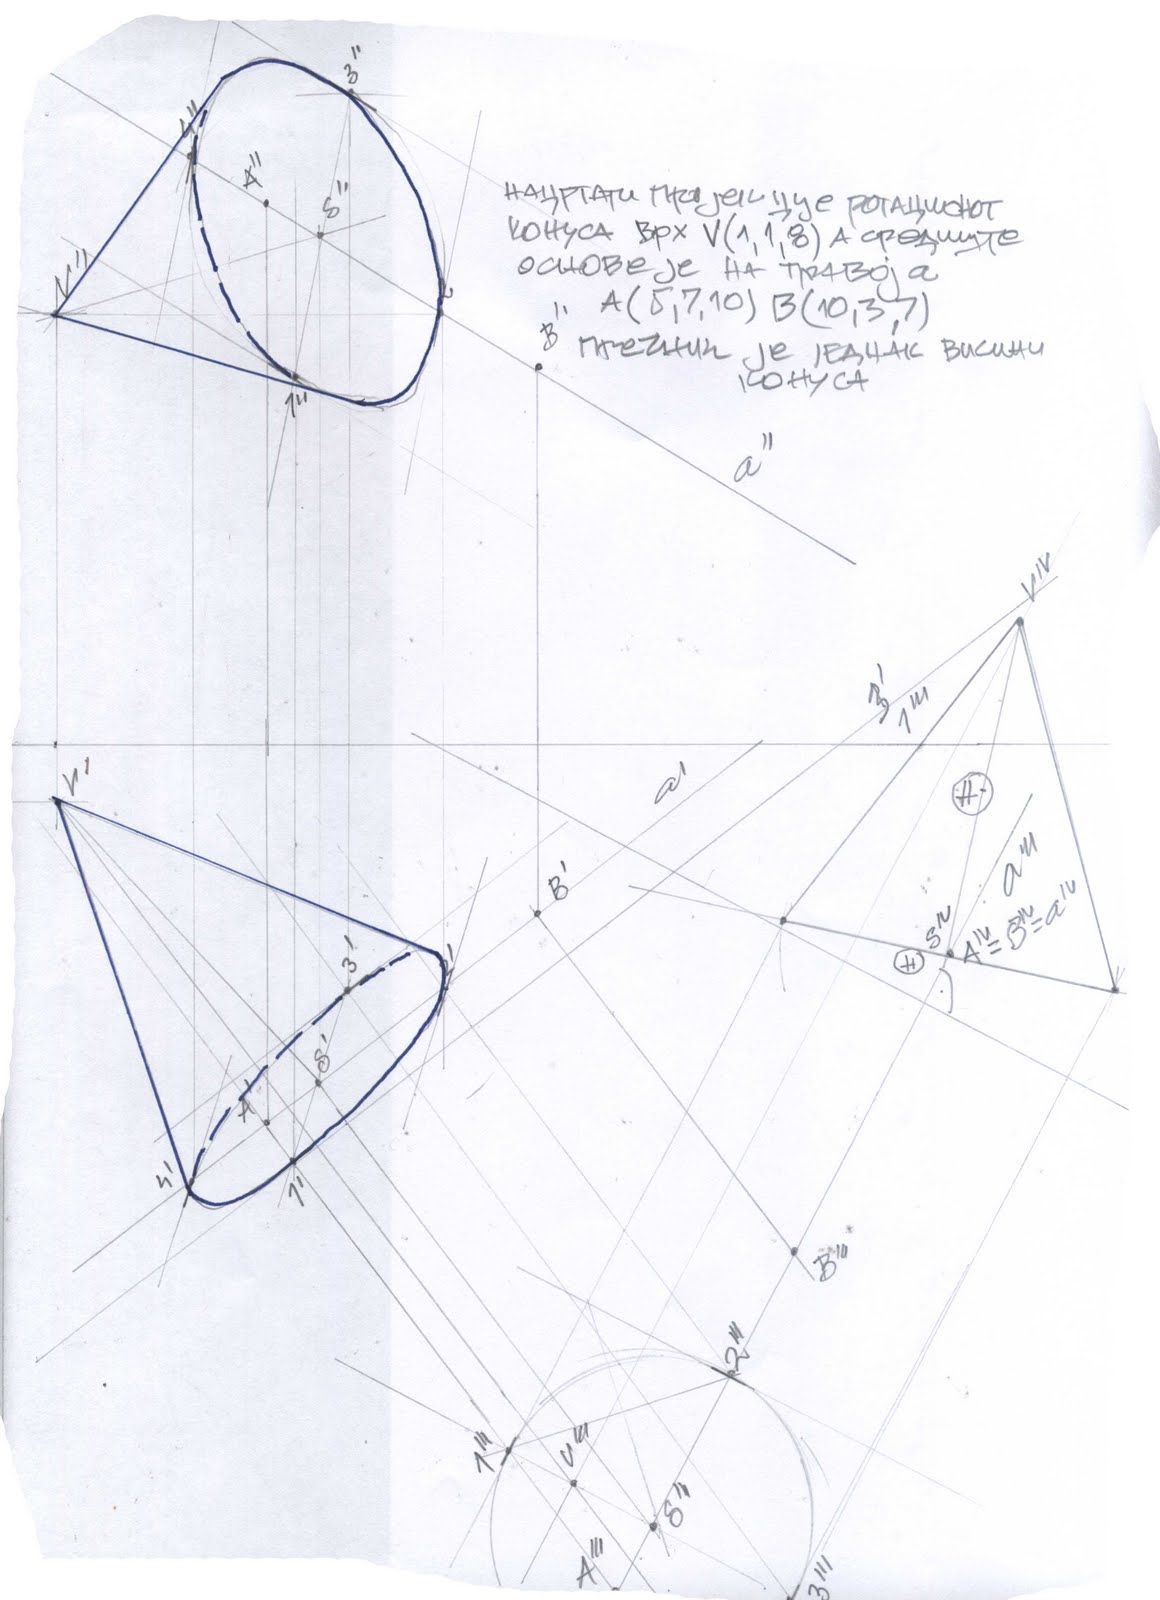 НАЦРТАТИ ПРОЈЕКЦИЈЕ РОТАЦИОНОГ
КОНУСА ВРХ V(1,1,8) А СРЕДИШТЕ
ОСНОВЕ ЈЕ НА ПРАВОЈ а
А(5,7,10) В(10,3,7)
ПРЕЧНИК ЈЕ ЈЕДНАК ВИСИНИ
КОНУСА
3"
4"
A"
S"
V"
2"
B"
1"
a"
V'
a'
B'
3'
2'
S'
A'
4'
1'
VIV
3'
1'''
H
a'''
SIV
AIV=BIV=aIV
H
B'''
2'''
1'''
V'''
S'''
A'''
3'''